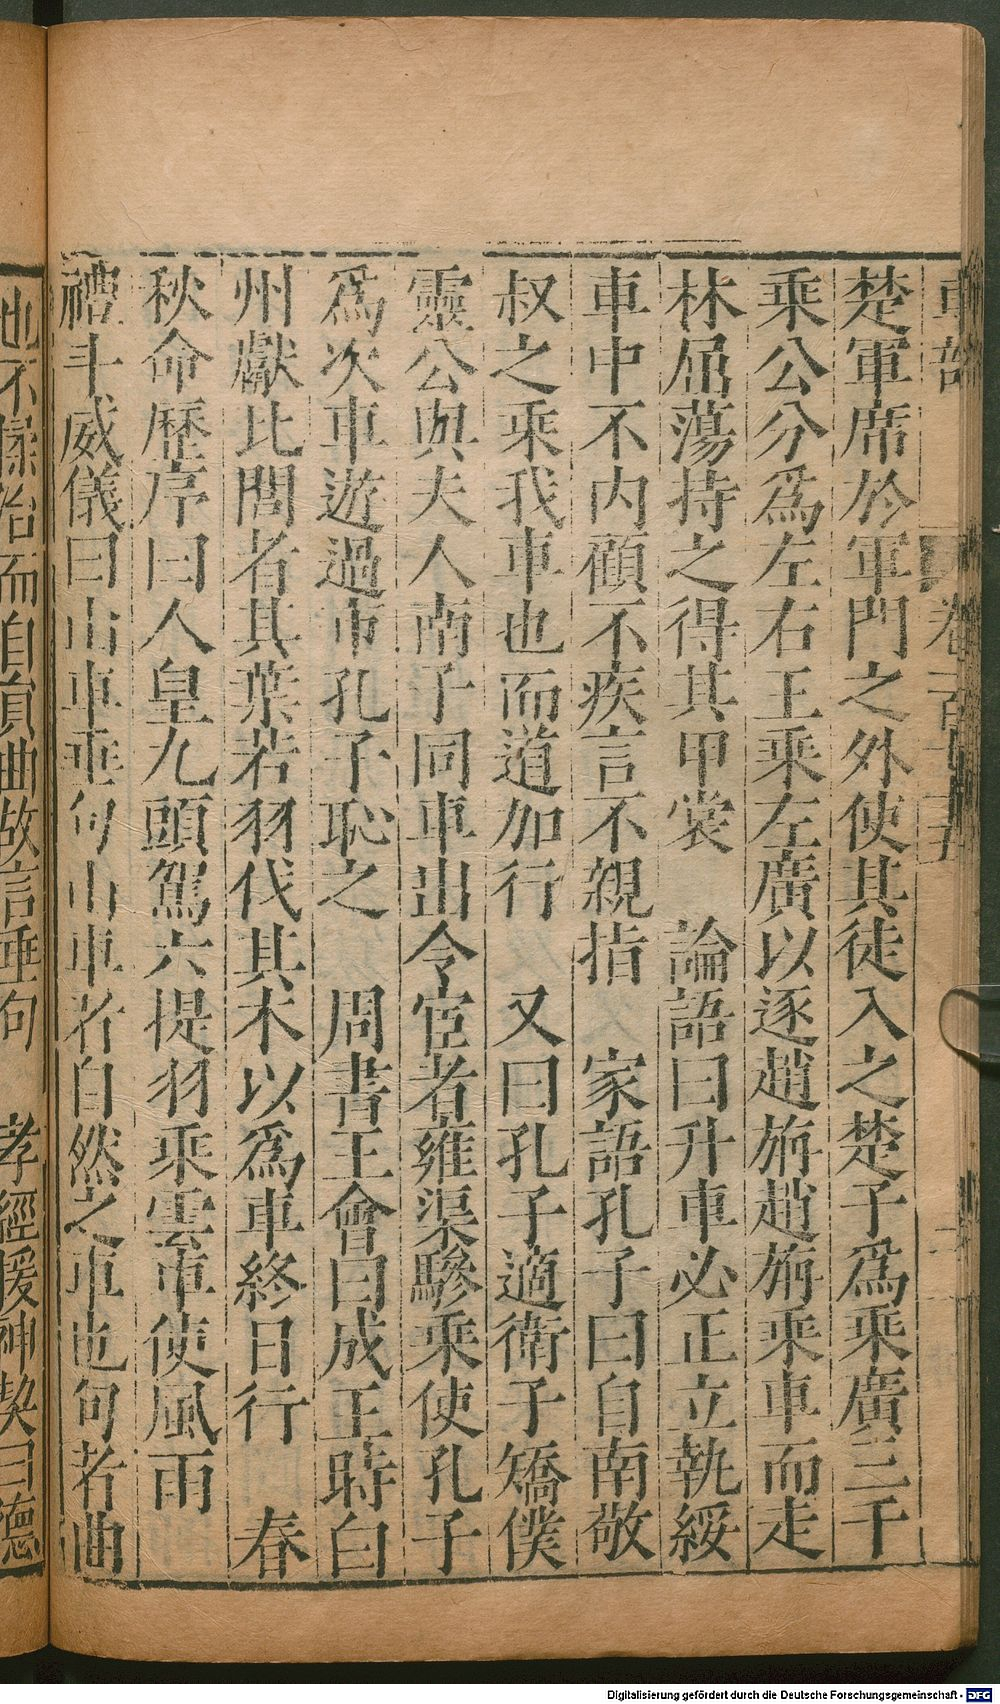 車部 卷一百四十五
楚軍席於軍門之外使其徒入之楚子爲乘廣三十
乘公分爲左右王乘左廣以逐趙旃趙旃乘車而走
林屈蕩持之得其甲裳 論語曰升車必正立執綏
車中不內顧不疾言不親指 家語孔子曰自南敬
叔之乘我車也而道加行 又曰孔子適衛子矯僕
靈公與夫人南子同車出令宦者雍渠驂乘使孔子
爲次車遊過市孔子恥之 周書王會曰成王時白
州獻比閭者其葉若羽伐其木以爲車終日行 春
秋命歷序曰人皇九頭駕六提羽乘雲車使風雨
禮斗威儀曰山車垂句山車者自然之車也句者曲
也不揉治而自員曲故言垂句 孝經援神契曰德
Digitalisierung gefördert durch die Deutsche Forschungsgemeinschaft - DFG